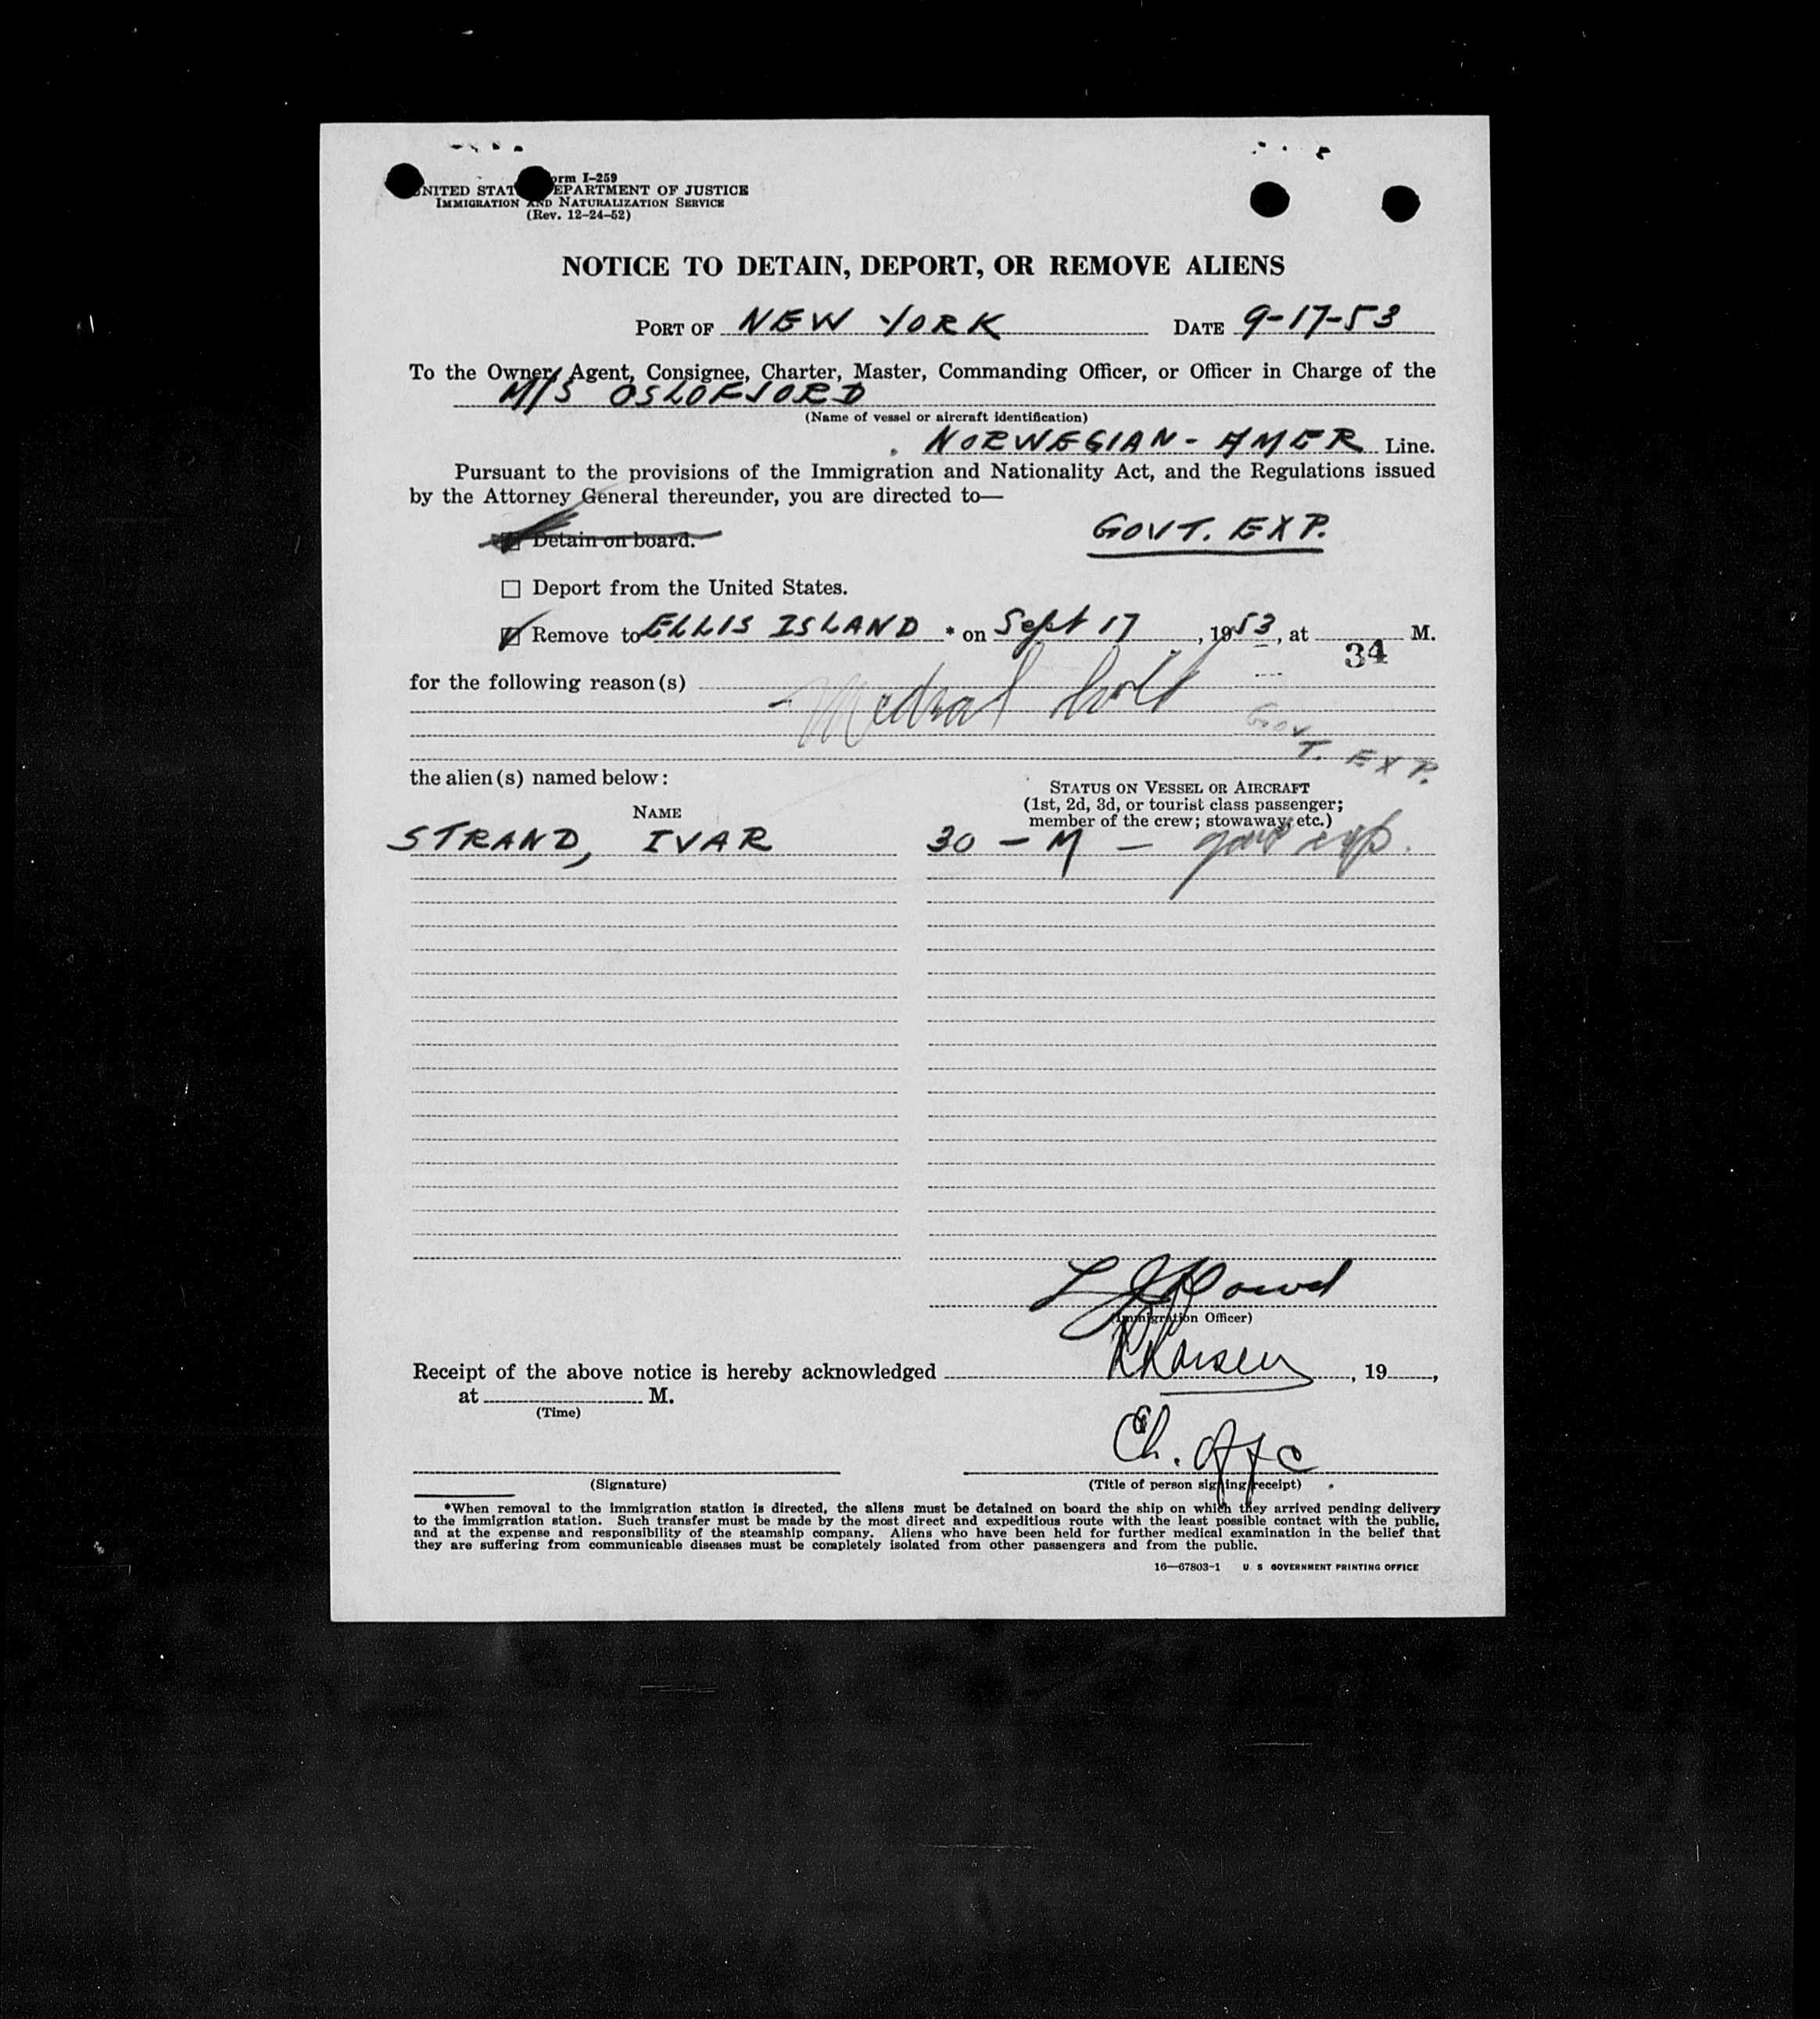 Form I-259
UNITED STATES DEPARTMENT OF JUSTICE
IMMIGRATION AND NATURALIZATION SERVICE
(Rev. 12-24-52)
NOTICE TO DETAIN, DEPORT, OR REMOVE ALIENS
PORT OF NEW YORK DATE 9-17-53
To the Owner, Agent, Consignee, Charter, Master, Commanding Officer, or Officer in Charge of the
M/S OSLOFJORD
(Name of vessel or aircraft identification)
NORWEGIAN-AMER Line.
Pursuant to the provisions of the Immigration and Nationality Act, and the Regulations issued
by the Attorney General thereunder, you are directed to—
Detain on board.
GOVT. EXP.
☐ Deport from the United States.
Remove to ELLIS ISLAND * on Sept 17, 1953, at M.
34
for the following reason(s)
- Medical hold
GOVT. EXP.
the alien(s) named below:
STATUS ON VESSEL OR AIRCRAFT
(1st, 2d, 3d, or tourist class passenger;
member of the crew; stowaway, etc.)
NAME
STRAND, IVAR 30 - M - gov exp.
(Immigration Officer)
Receipt of the above notice is hereby acknowledged , 19 ,
at M.
(Time)
Ch. offc
(Signature) (Title of person signing receipt)
*When removal to the immigration station is directed, the aliens must be detained on board the ship on which they arrived pending delivery
to the immigration station. Such transfer must be made by the most direct and expeditious route with the least possible contact with the public,
and at the expense and responsibility of the steamship company. Aliens who have been held for further medical examination in the belief that
they are suffering from communicable diseases must be completely isolated from other passengers and from the public.
16—67803-1 U. S GOVERNMENT PRINTING OFFICE